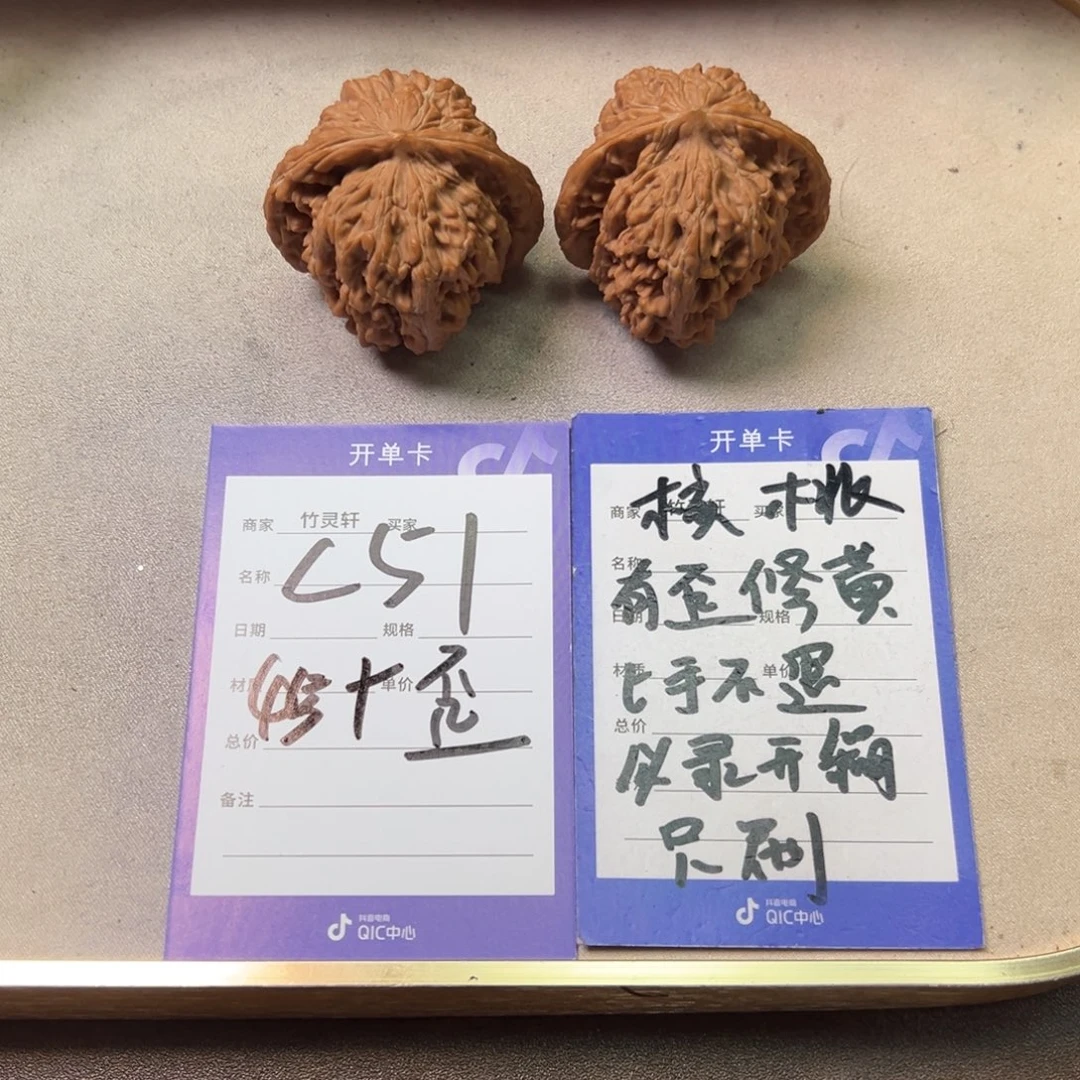 开单卡
商家 竹灵轩 买家
名称
C51
日期 规格
材质 单价
修十歪
总价
备注
抖音电商
QIC中心
开单卡
商家 竹灵轩 买家
核桃
名称
有歪修黄
日期 规格
材质 单价
上手不退
总价
必录开箱
只刷
抖音电商
QIC中心